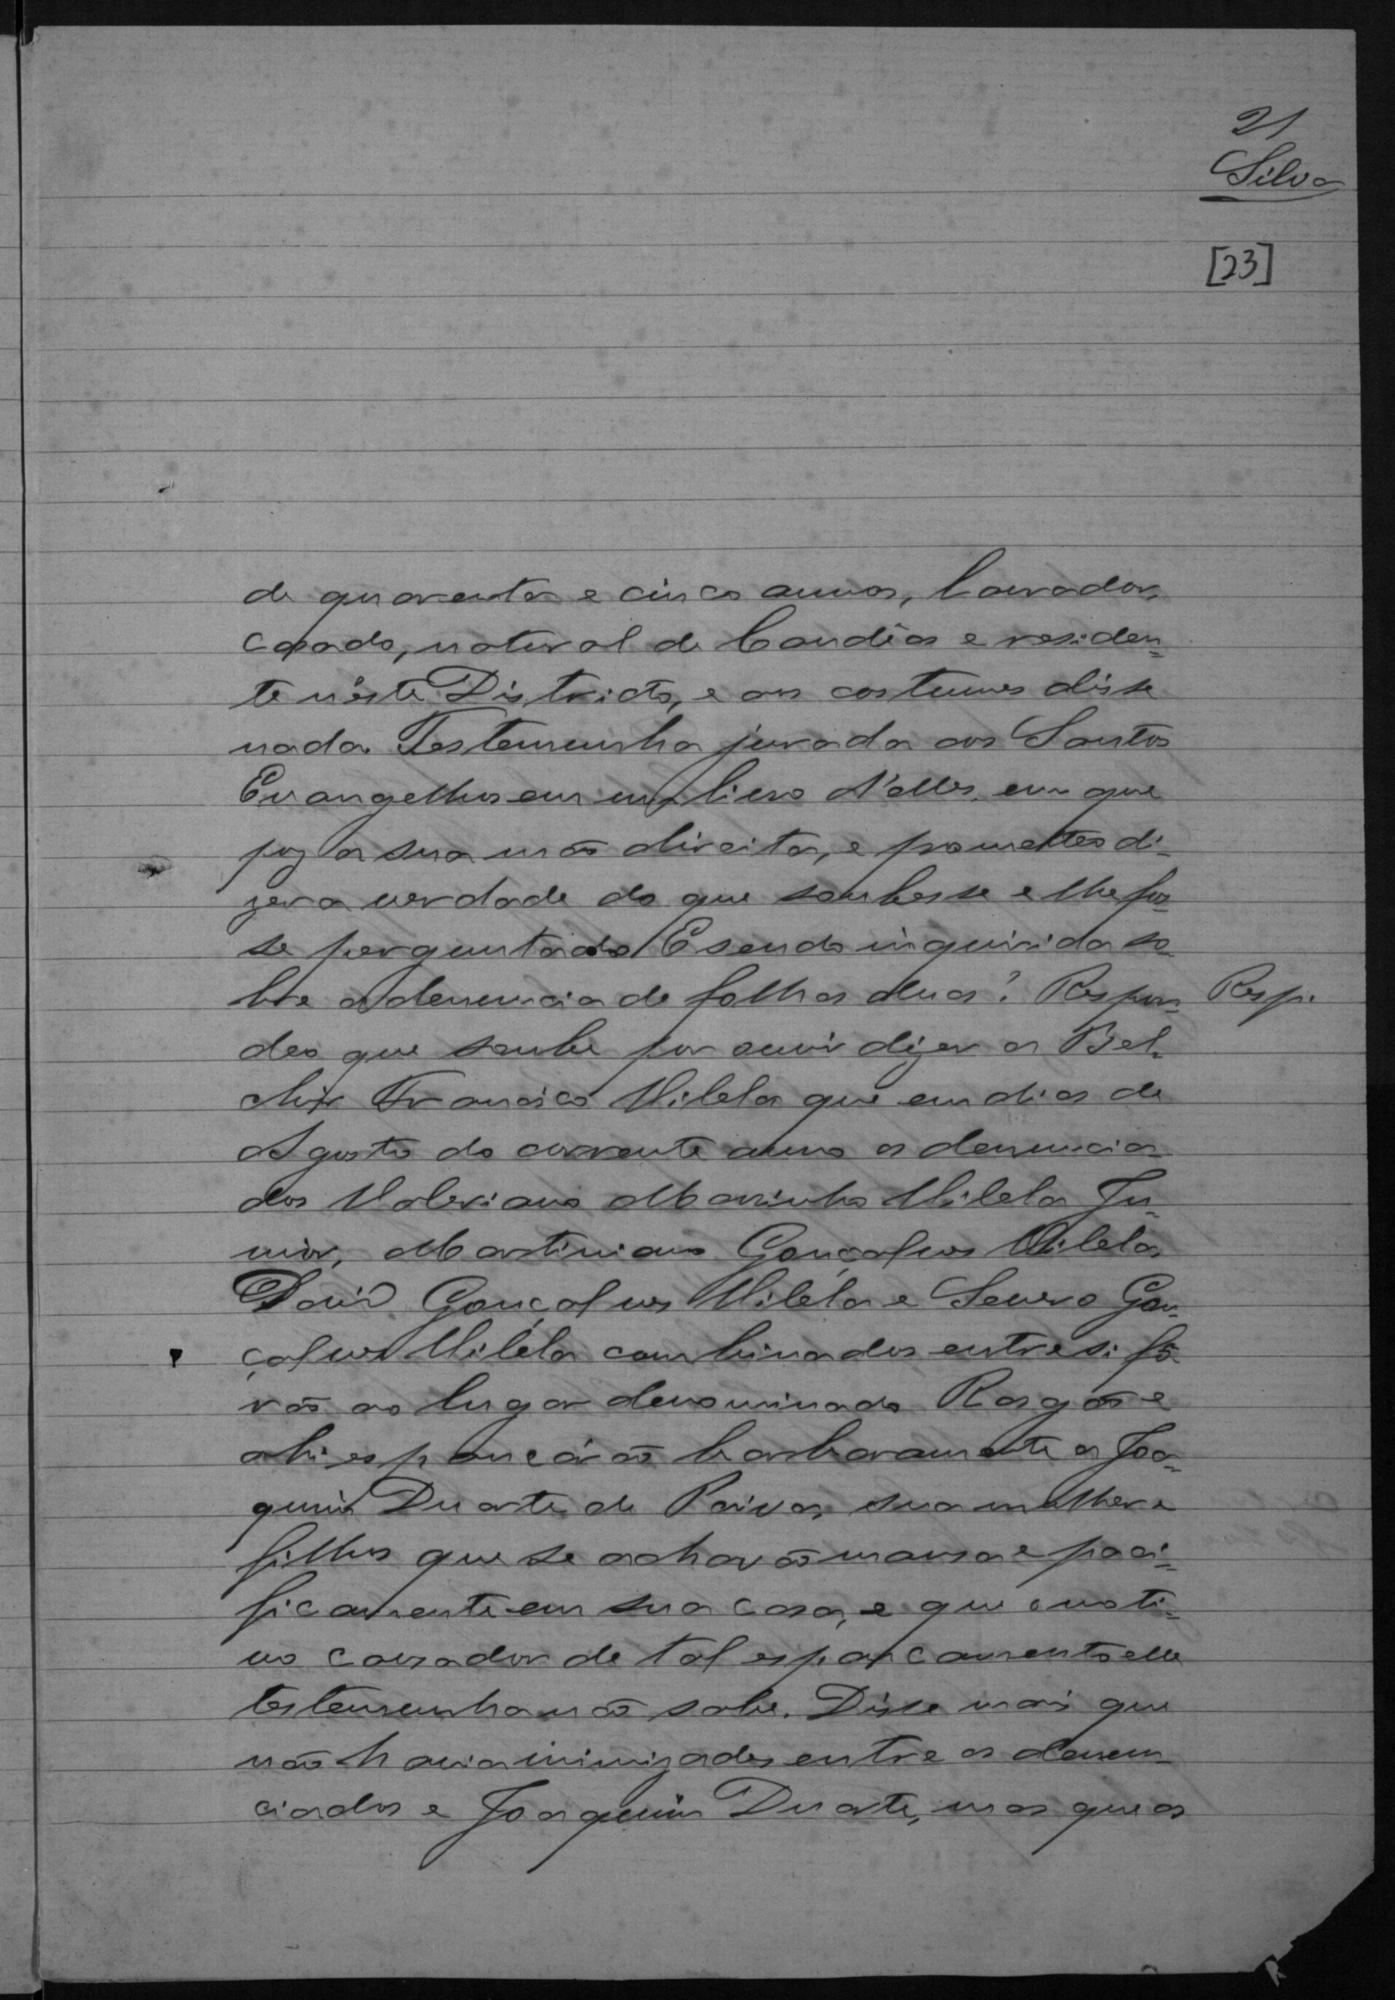 21
Silva
[23]
de quarenta e cinco annos, lavrador,
casado, natural de Candêas e residen=
te n'éste Districto, e aos costumes disse
nada. Testemunha jurada aos Santos
Evangelhos em um livro d'elles, em que
poz a sua mão direita, e prometteo di=
zer a verdade do que soubesse e lhe fos=
se perguntado. E sendo inquirida so=
bre a denuncia de folhas duas? Respon= Resp.
deo que soube por ouvir dizer a Bel=
chior Francisco Vilela que em dias de
Agosto do corrente anno os denuncia
dos Valeriano Marinho Vilela Ju=
nior, Martiniano Gonçalves Vilela,
David Gonçalves Viléla e Severo Gon=
çalves Viléla combinados entre si fô
rão ao lugar denominado Rasgão e
ahi espancárão barbaramente a Joa=
quim Duarte de Paiva, sua mulher e
filhos que se achavão mansa e paci=
ficamente em sua casa, e que o moti=
vo causador de tal espancamento elle
testemunha não sabe. Disse mais que
não havia inimizades entre os denun=
ciados e Joaquim Duarte, mas que os